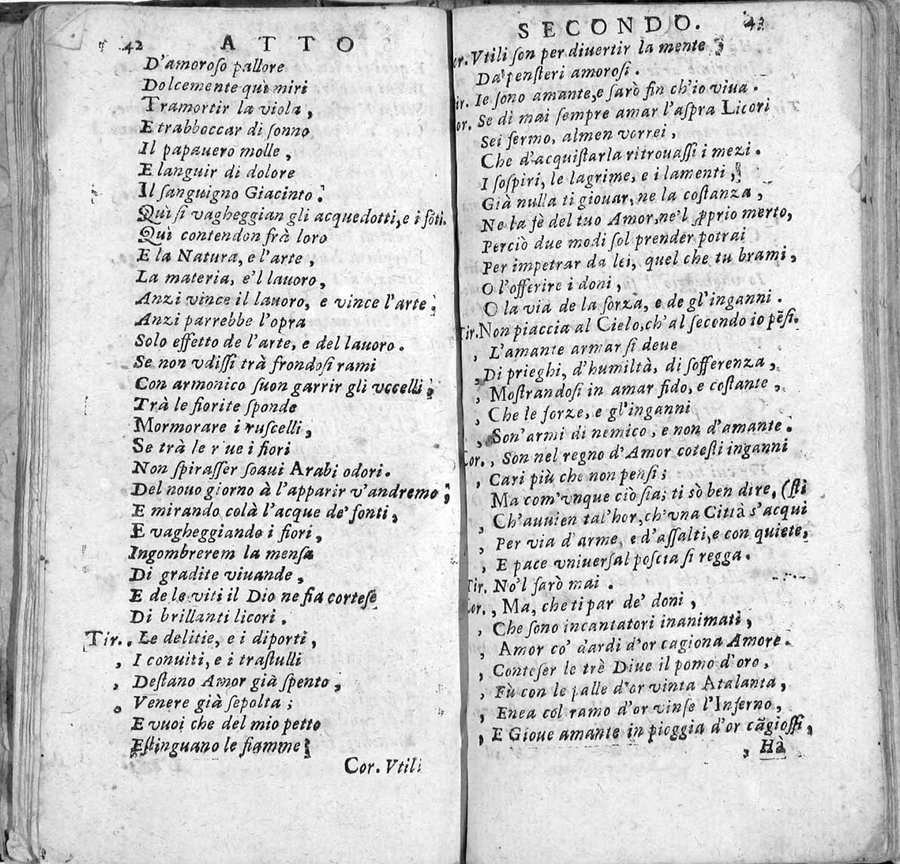 42 ATTO
D'amoroso pallore
Dolcemente qui miri
Tramortir la viola,
E trabboccar di sonno
Il papauero molle,
E languir di dolore
Il sanguigno Giacinto.
Qui si vagheggian gli acquedotti, e i fõti.
Qui contendon frà loro
E la Natura, e l'arte,
La materia, e'l lauoro,
Anzi vince il lauoro, e vince l'arte;
Anzi parrebbe l'opra
Solo effetto de l'arte, e del lauoro.
Se non vdissi trà frondosi rami
Con armonico suon garrir gli vccelli;
Trà le fiorite sponde
Mormorare i ruscelli,
Se trà le r ue i fiori
Non spirasser soaui Arabi odori.
Del nouo giorno à l'apparir v'andremo;
E mirando colà l'acque de' fonti,
E vagheggiando i fiori,
Ingombrerem la mensa
Di gradite viuande,
E de le viti il Dio ne fia cortese
Di brillanti licori.
Tir. Le delitie, e i diporti,
I conuiti, e i trastulli
Destano Amor già spento,
Venere già sepolta;
E vuoi che del mio petto
Estinguano le fiamme?
Cor. Vtili
SECONDO. 43
Cor. Vtili son per diuertir la mente
Da' pensieri amorosi.
Tir. Ie sono amante, e sarò fin ch'io viua.
Cor. Se di mai sempre amar l'aspra Licori
Sei fermo, almen vorrei,
Che d'acquistarla ritrouassi i mezi.
I sospiri, le lagrime, e i lamenti,
Già nulla ti giouar, ne la costanza,
Ne la fè del tuo Amor, ne'l ꝓprio merto,
Perciò due modi sol prender potrai
Per impetrar da lei, quel che tu brami,
O l'offerire i doni,
O la via de la forza, e de gl'inganni.
Tir. Non piaccia al Cielo, ch'al secondo io pẽsi.
L'amante armar si deue
Di prieghi, d'humiltà, di sofferenza,
Mostrandosi in amar fido, e costante,
Che le forze, e gl'inganni
Son'armi di nemico, e non d'amante.
Cor. Son nel regno d'Amor cotesti inganni
Cari più che non pensi;
Ma com'vnque ciò sia; ti sò ben dire, (sti
Ch'auuien tal'hor, ch'vna Città s'acqui
Per via d'arme, e d'assalti, e con quiete,
E pace vniuersal poscia si regga.
Tir. No'l farò mai.
Cor. Ma, che ti par de' doni,
Che sono incantatori inanimati,
Amor co' dardi d'or cagiona Amore.
Conteser le trè Diue il pomo d'oro,
Fù con le palle d'or vinta Atalanta,
Enea col ramo d'or vinse l'Inferno,
E Gioue amante in pioggia d'or cãgiossi,
Hà